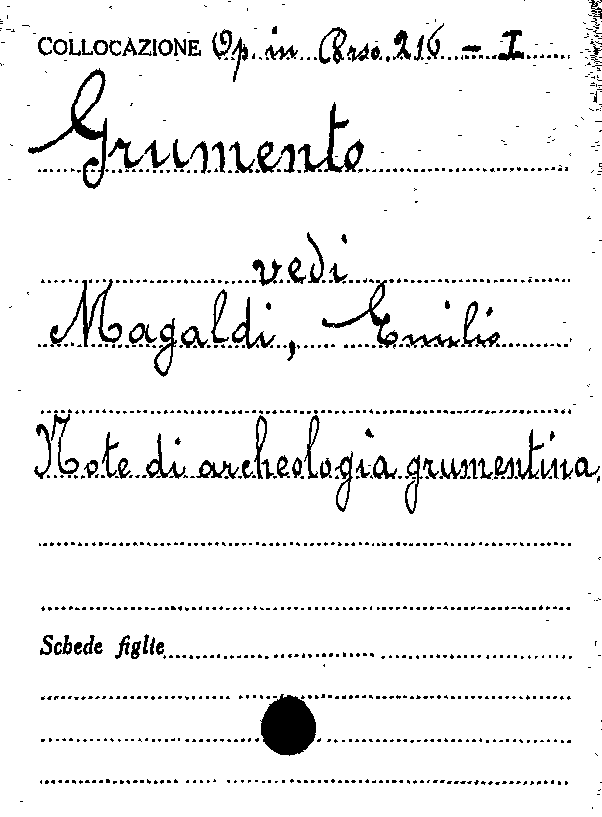 COLLOCAZIONE Op. in Corso. 216 - I
Grumento
vedi
Magaldi, Emilio
Note di archeologia grumentina.
Schede figlie